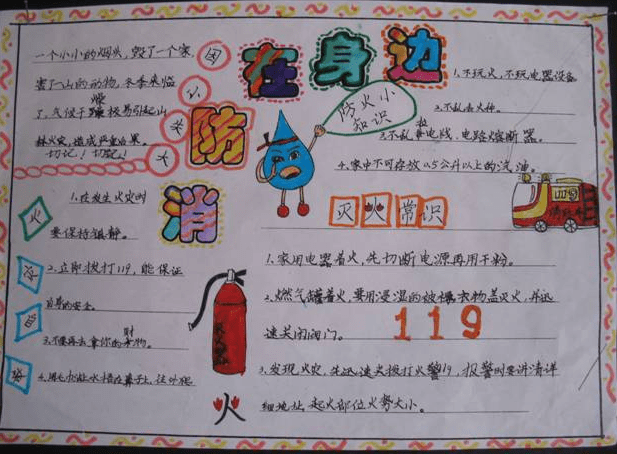 消防在身边
一个小小的烟头，毁了一个家，
害了一山的动物，冬季来临
了，气候干燥极易引起山
林火灾，造成严重后果。
切记！切记！
防火小
知识
1.不玩火，不玩电器设备
2.不乱丢火种。
3.不乱私电线、电路熔断器。
4.家中不可存放0.5公升以上的汽油。
1.在发生火灾时
要保持镇静。
2.立即拨打119，能保证
自身的安全。
3.不要再去拿你的财物。
火
灭火常识
1.家用电器着火，先切断电源再用干粉。
2.燃气罐着火，要用浸湿的被褥衣物盖灭火，并迅
速关闭阀门。
119
3.发现火灾，先迅速火拨打火警119，报警时要讲清详
细地址、起火部位火势大小。
火